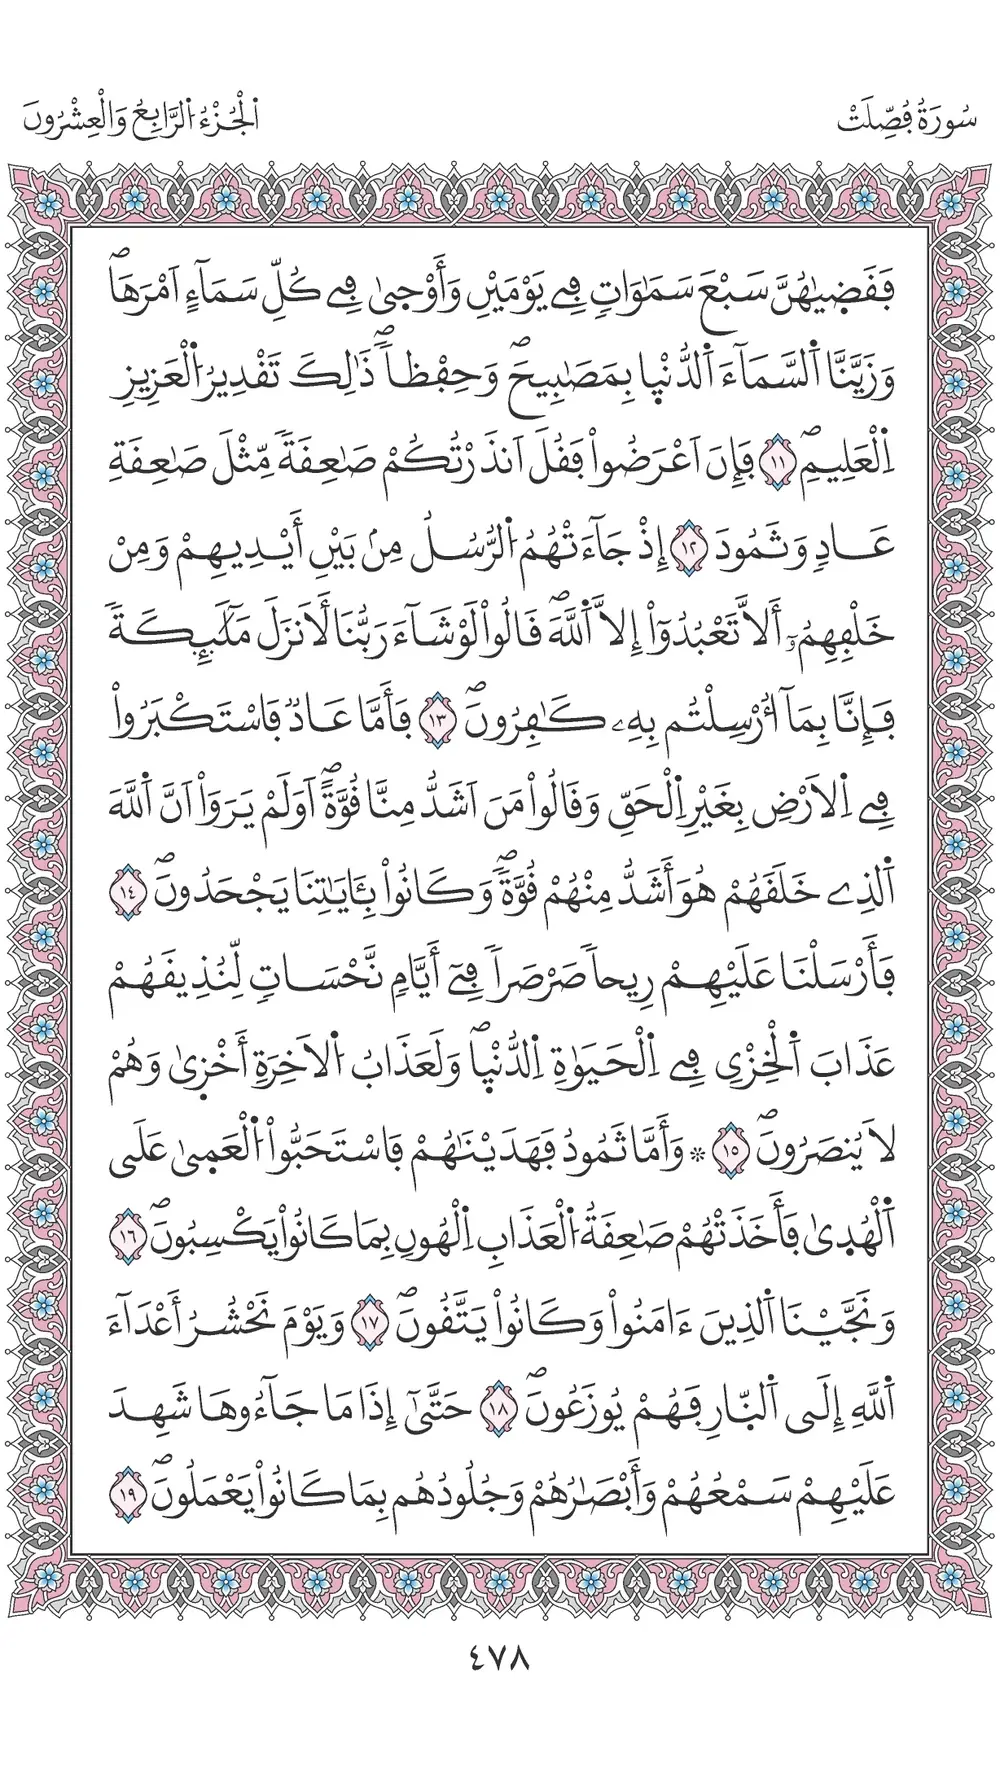 سُورَةُ فُصِّلَتْ
اَلْجُزْءُ اُلرَّابِعُ وَالْعِشْرُونَ
فَقَضۭيٰهُنَّ سَبْعَ سَمَٰوَاتٖ فِے يَوْمَيْنِ وَأَوْح۪يٰ فِے كُلِّ سَمَآءٍ اَمْرَهَاۖ
وَزَيَّنَّا اَ۬لسَّمَآءَ اَ۬لدُّنْي۪ا بِمَصَٰبِيحَۖ وَحِفْظاٗۖ ذَٰلِكَ تَقْدِيرُ اُ۬لْعَزِيزِ
اِ۬لْعَلِيمِۖ ١١ فَإِنَ اَعْرَضُواْ فَقُلَ اَنذَرْتُكُمْ صَٰعِقَةٗ مِّثْلَ صَٰعِقَةِ
عَادٖ وَثَمُودَ ١٢ إِذْ جَآءَتْهُمُ اُ۬لرُّسُلُ مِنۢ بَيْنِ أَيْدِيهِمْ وَمِنْ
خَلْفِهِمُۥٓ أَلَّا تَعْبُدُوٓاْ إِلَّا اَ۬للَّهَۖ قَالُواْ لَوْ شَآءَ رَبُّنَا لَأَنزَلَ مَلَٰٓئِكَةٗ
فَإِنَّا بِمَآ أُرْسِلْتُم بِهِۦ كَٰفِرُونَۖ ١٣ فَأَمَّا عَادٞ فَاسْتَكْبَرُواْ
فِے اِ۬لَارْضِ بِغَيْرِ اِ۬لْحَقِّ وَقَالُواْ مَنَ اَشَدُّ مِنَّا قُوَّةًۖ اَوَلَمْ يَرَوَاْ اَنَّ اَ۬للَّهَ
اَ۬لذِے خَلَقَهُمْ هُوَ أَشَدُّ مِنْهُمْ قُوَّةٗۖ وَكَانُواْ بِـَٔايَٰتِنَا يَجْحَدُونَۖ ١٤
فَأَرْسَلْنَا عَلَيْهِمْ رِيحاٗ صَرْصَراٗ فِےٓ أَيَّامٖ نَّحْسَاتٖ لِّنُذِيقَهُمْ
عَذَابَ اَ۬لْخِزْيِ فِے اِ۬لْحَيَوٰةِ اِ۬لدُّنْي۪اۖ وَلَعَذَابُ اُ۬لَاخِرَةِ أَخْز۪يٰ وَهُمْ
لَا يُنصَرُونَۖ ١٥ ۞ وَأَمَّا ثَمُودُ فَهَدَيْنَٰهُمْ فَاسْتَحَبُّواْ اُ۬لْعَم۪يٰ عَلَي
اَ۬لْهُد۪يٰ فَأَخَذَتْهُمْ صَٰعِقَةُ اُ۬لْعَذَابِ اِ۬لْهُونِ بِمَا كَانُواْ يَكْسِبُونَۖ ١٦
وَنَجَّيْنَا اَ۬لذِينَ ءَامَنُواْ وَكَانُواْ يَتَّقُونَۖ ١٧ وَيَوْمَ نَحْشُرُ أَعْدَآءَ
اَ۬للَّهِ إِلَي اَ۬لنّ۪ارِ فَهُمْ يُوزَعُونَۖ ١٨ حَتَّيٰٓ إِذَا مَا جَآءُوهَا شَهِدَ
عَلَيْهِمْ سَمْعُهُمْ وَأَبْصَٰرُهُمْ وَجُلُودُهُم بِمَا كَانُواْ يَعْمَلُونَۖ ١٩
٤٧٨